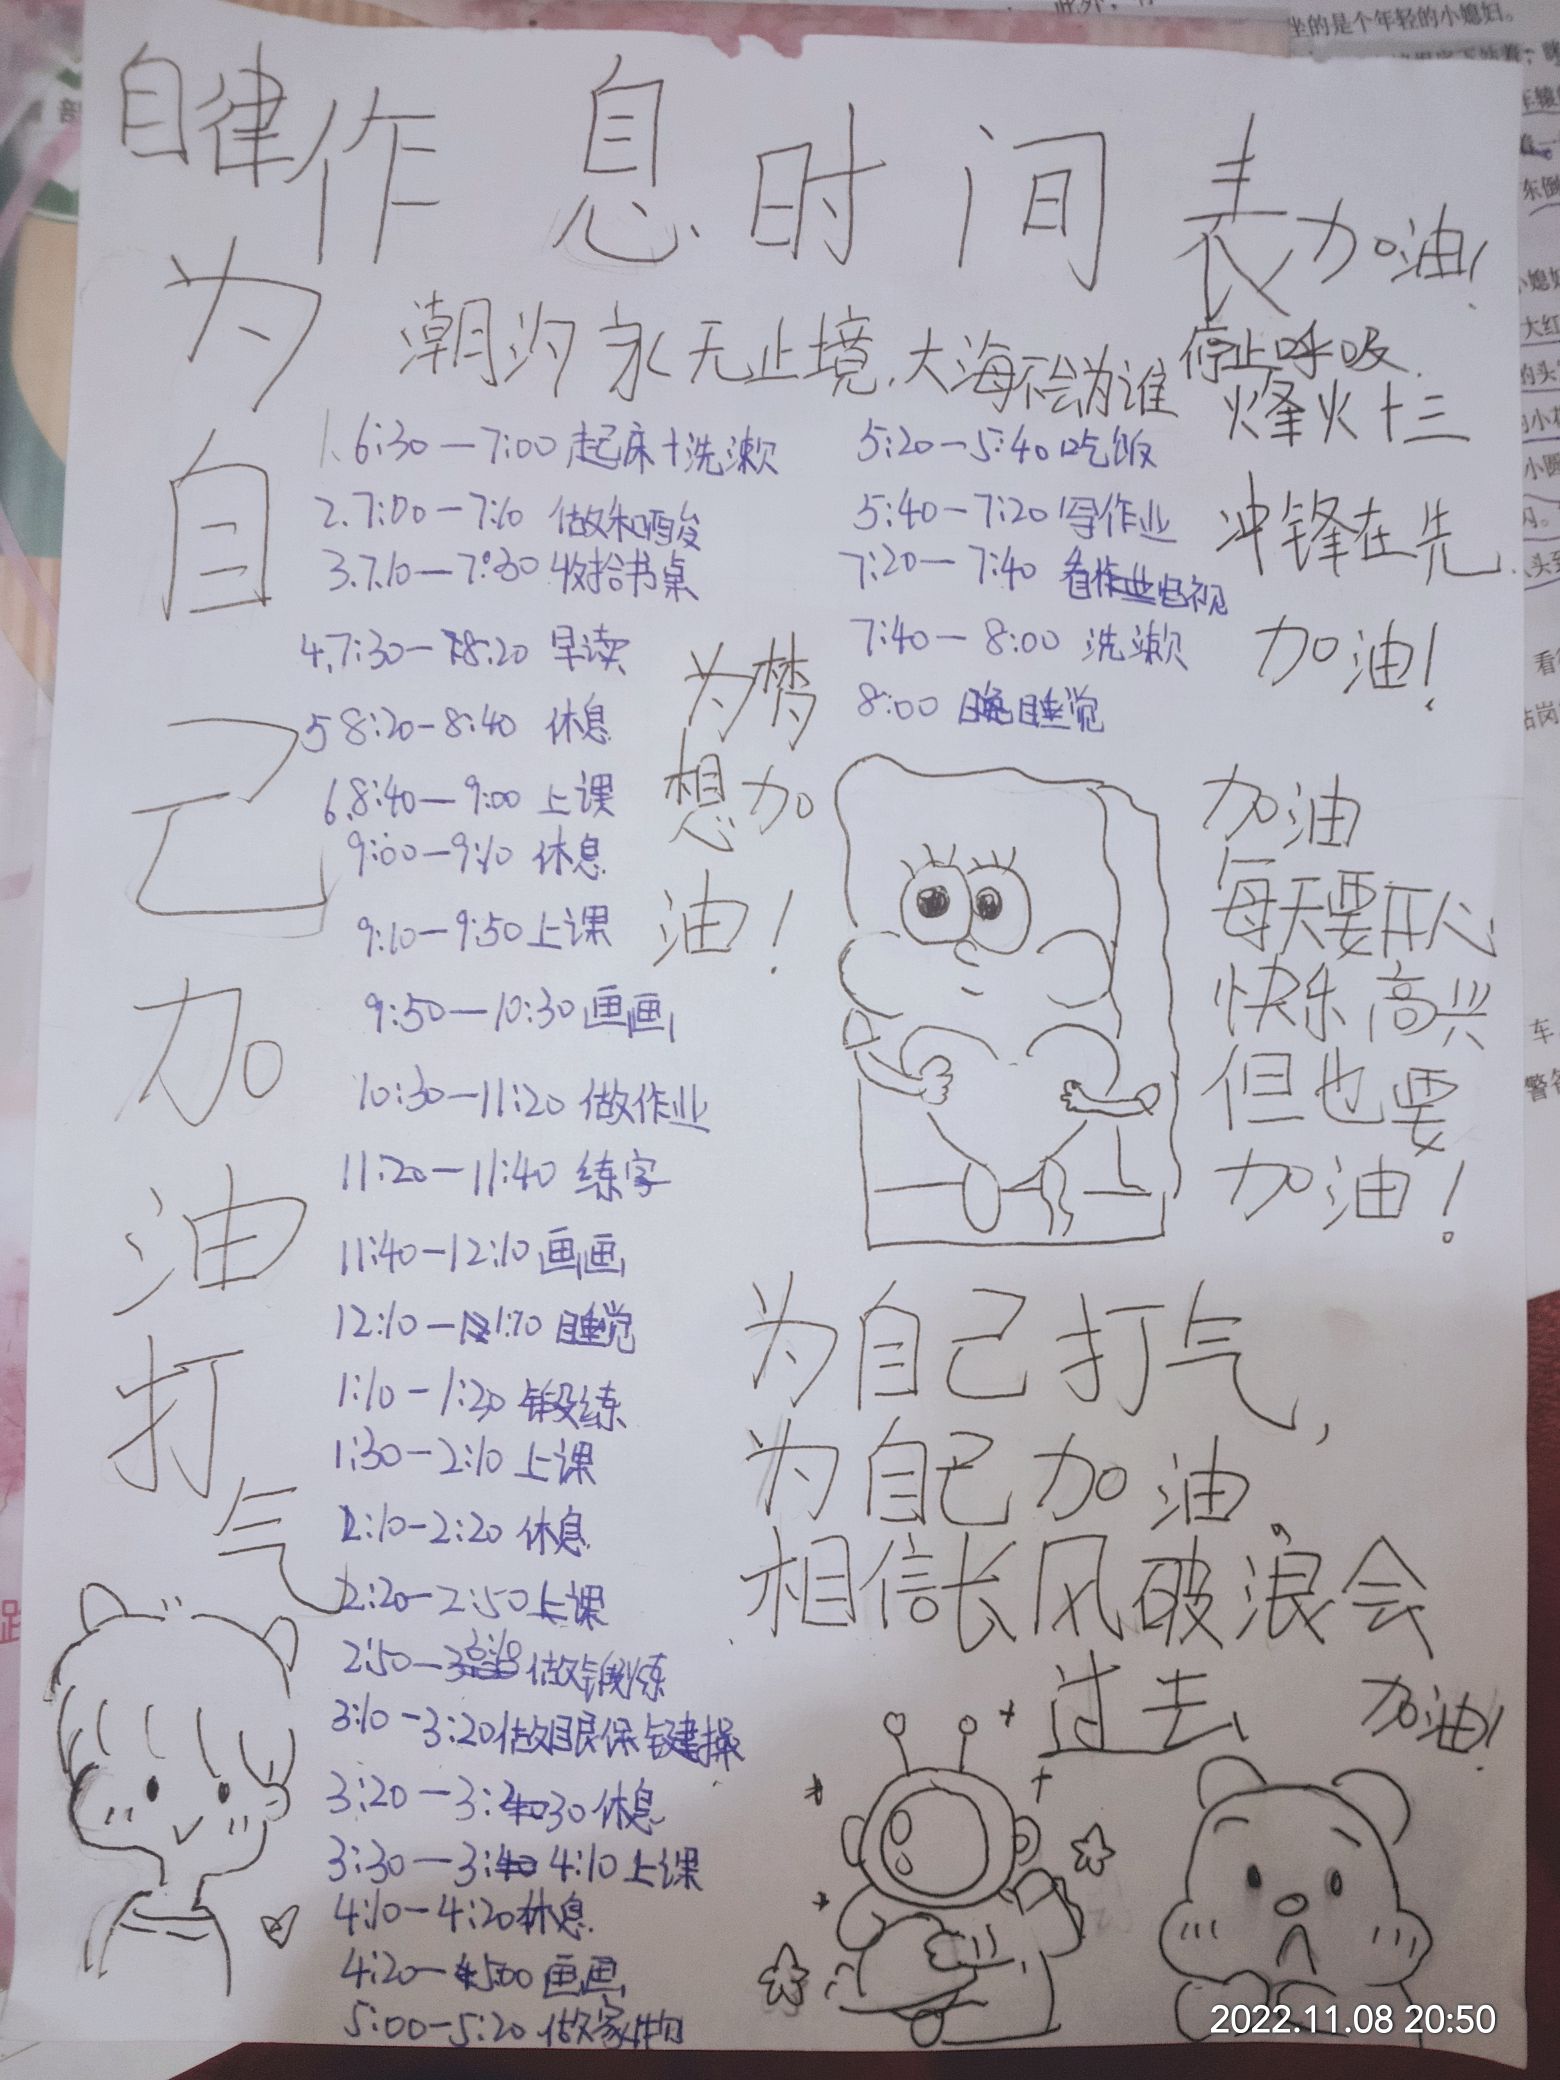 自律作息时间表加油!
为自己加油打气
潮汐永无止境.大海不会为谁停止呼吸.
1.6:30—7:00 起床+洗漱
2.7:00—7:10 做和酸
3.7.10—7:30 收拾书桌
4.7:30—8:20 早读
5 8:20-8:40 休息
6.8:40—9:00 上课
9:00—9:10 休息
9:10—9:50 上课
9:50—10:30 画画
10:30—11:20 做作业
11:20—11:40 练字
11:40—12:10 画画
12:10—1:10 睡觉
1:10—1:20 锻练
1:30—2:10 上课
2:10-2:20 休息
2:20—2:50 上课
2:50—3:10 做锻炼
3:10-3:20 做眼保键操
3:20—3:30 休息
3:30—4:10 上课
4:10—4:20 休息
4:20—5:00 画画
5:00-5:20 做家物
5:20—5:40 吃饭
5:40—7:20 写作业
7:20—7:40 看电视
7:40—8:00 洗漱
8:00 睡觉
为梦
想加
油!
烽火十三
冲锋在先
加油!
加油
每天要开心
快乐高兴
但也要
加油!
为自己打气,
为自己加油,
相信长风破浪会
过去
加油!
坐的是个年轻的小媳妇。
2022.11.08 20:50